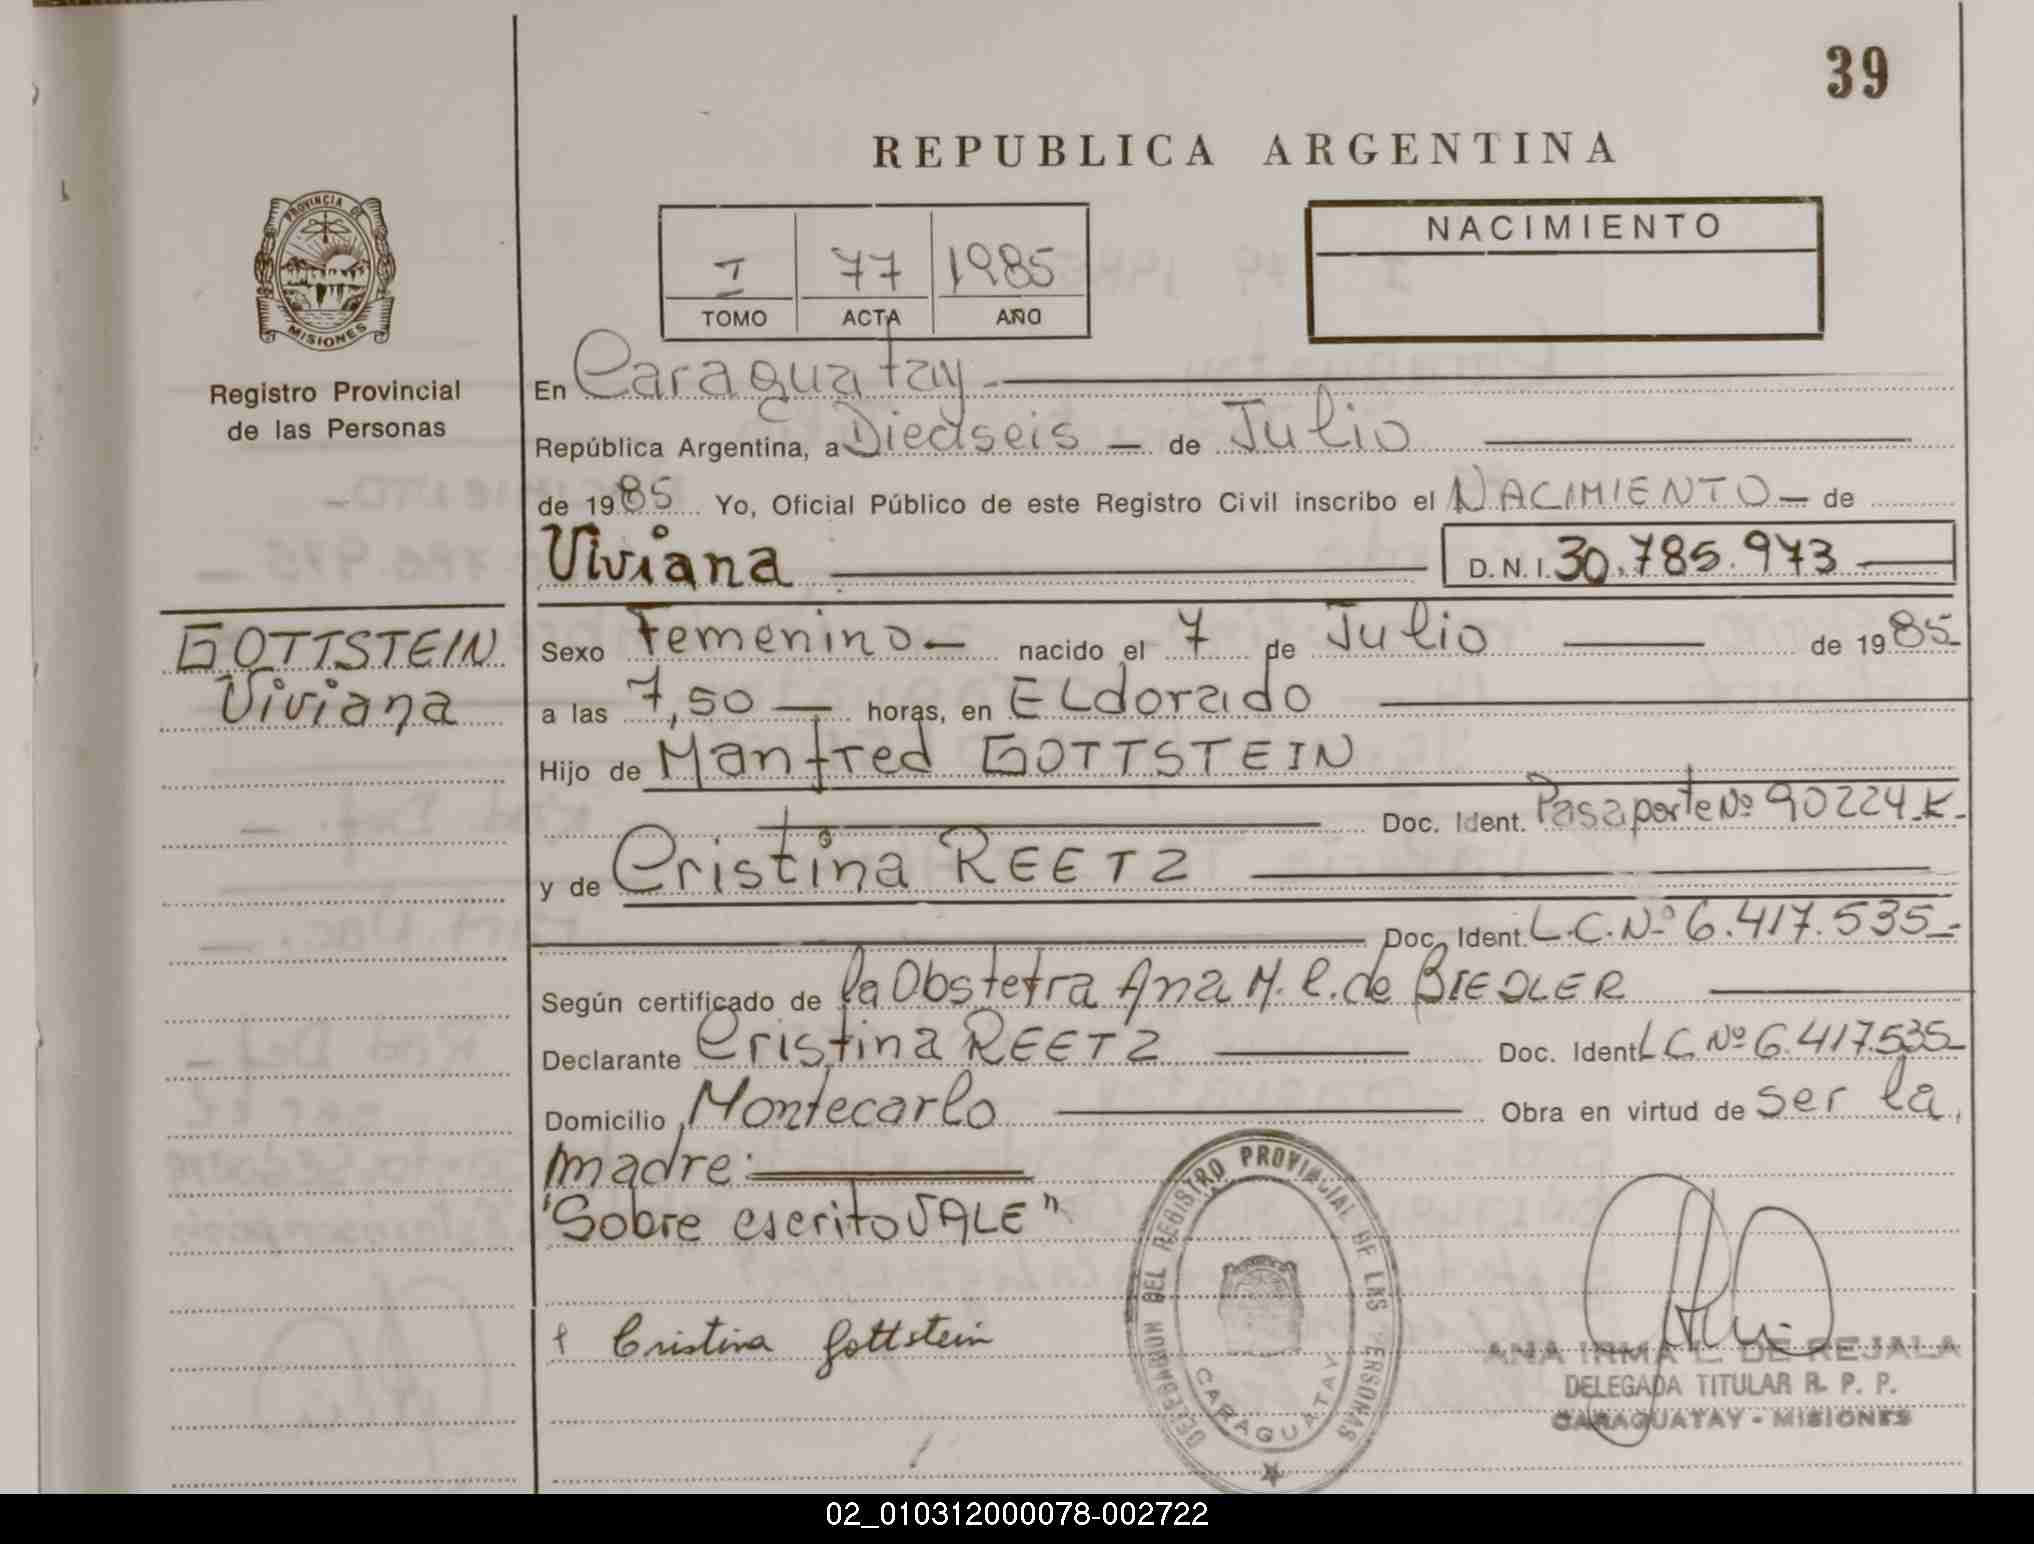 39
REPUBLICA ARGENTINA
PROVINCIA DE
MISIONES
Registro Provincial
de las Personas
I 77 1985
TOMO ACTA AÑO
NACIMIENTO
En Caraguatay
República Argentina, a Diedseis — de Julio
de 1985 Yo, Oficial Público de este Registro Civil inscribo el NACIMIENTO — de
Viviana D.N.I. 30.785.973
GOTTSTEIN
Viviana
Sexo Femenino — nacido el 7 de Julio de 1985
a las 7,50 — horas, en ELdorado
Hijo de Manfred GOTTSTEIN
Doc. Ident. Pasaporte Nº 90224.K-
y de Cristina REETZ
Doc. Ident. L.C.Nº 6.417.535-
Según certificado de la Obstetra Ana M. C. de BIEDLER
Declarante Cristina REETZ Doc. Ident L.C. Nº 6.417.535-
Domicilio Montecarlo Obra en virtud de ser la
madre:
"Sobre escrito VALE"
Cristina Gottstein
DELEGACION DEL REGISTRO PROVINCIAL DE LAS PERSONAS
CARAGUATAY
ANA IRMA L. DE REJALA
DELEGADA TITULAR R. P. P.
CARAGUATAY - MISIONES
02_010312000078-002722